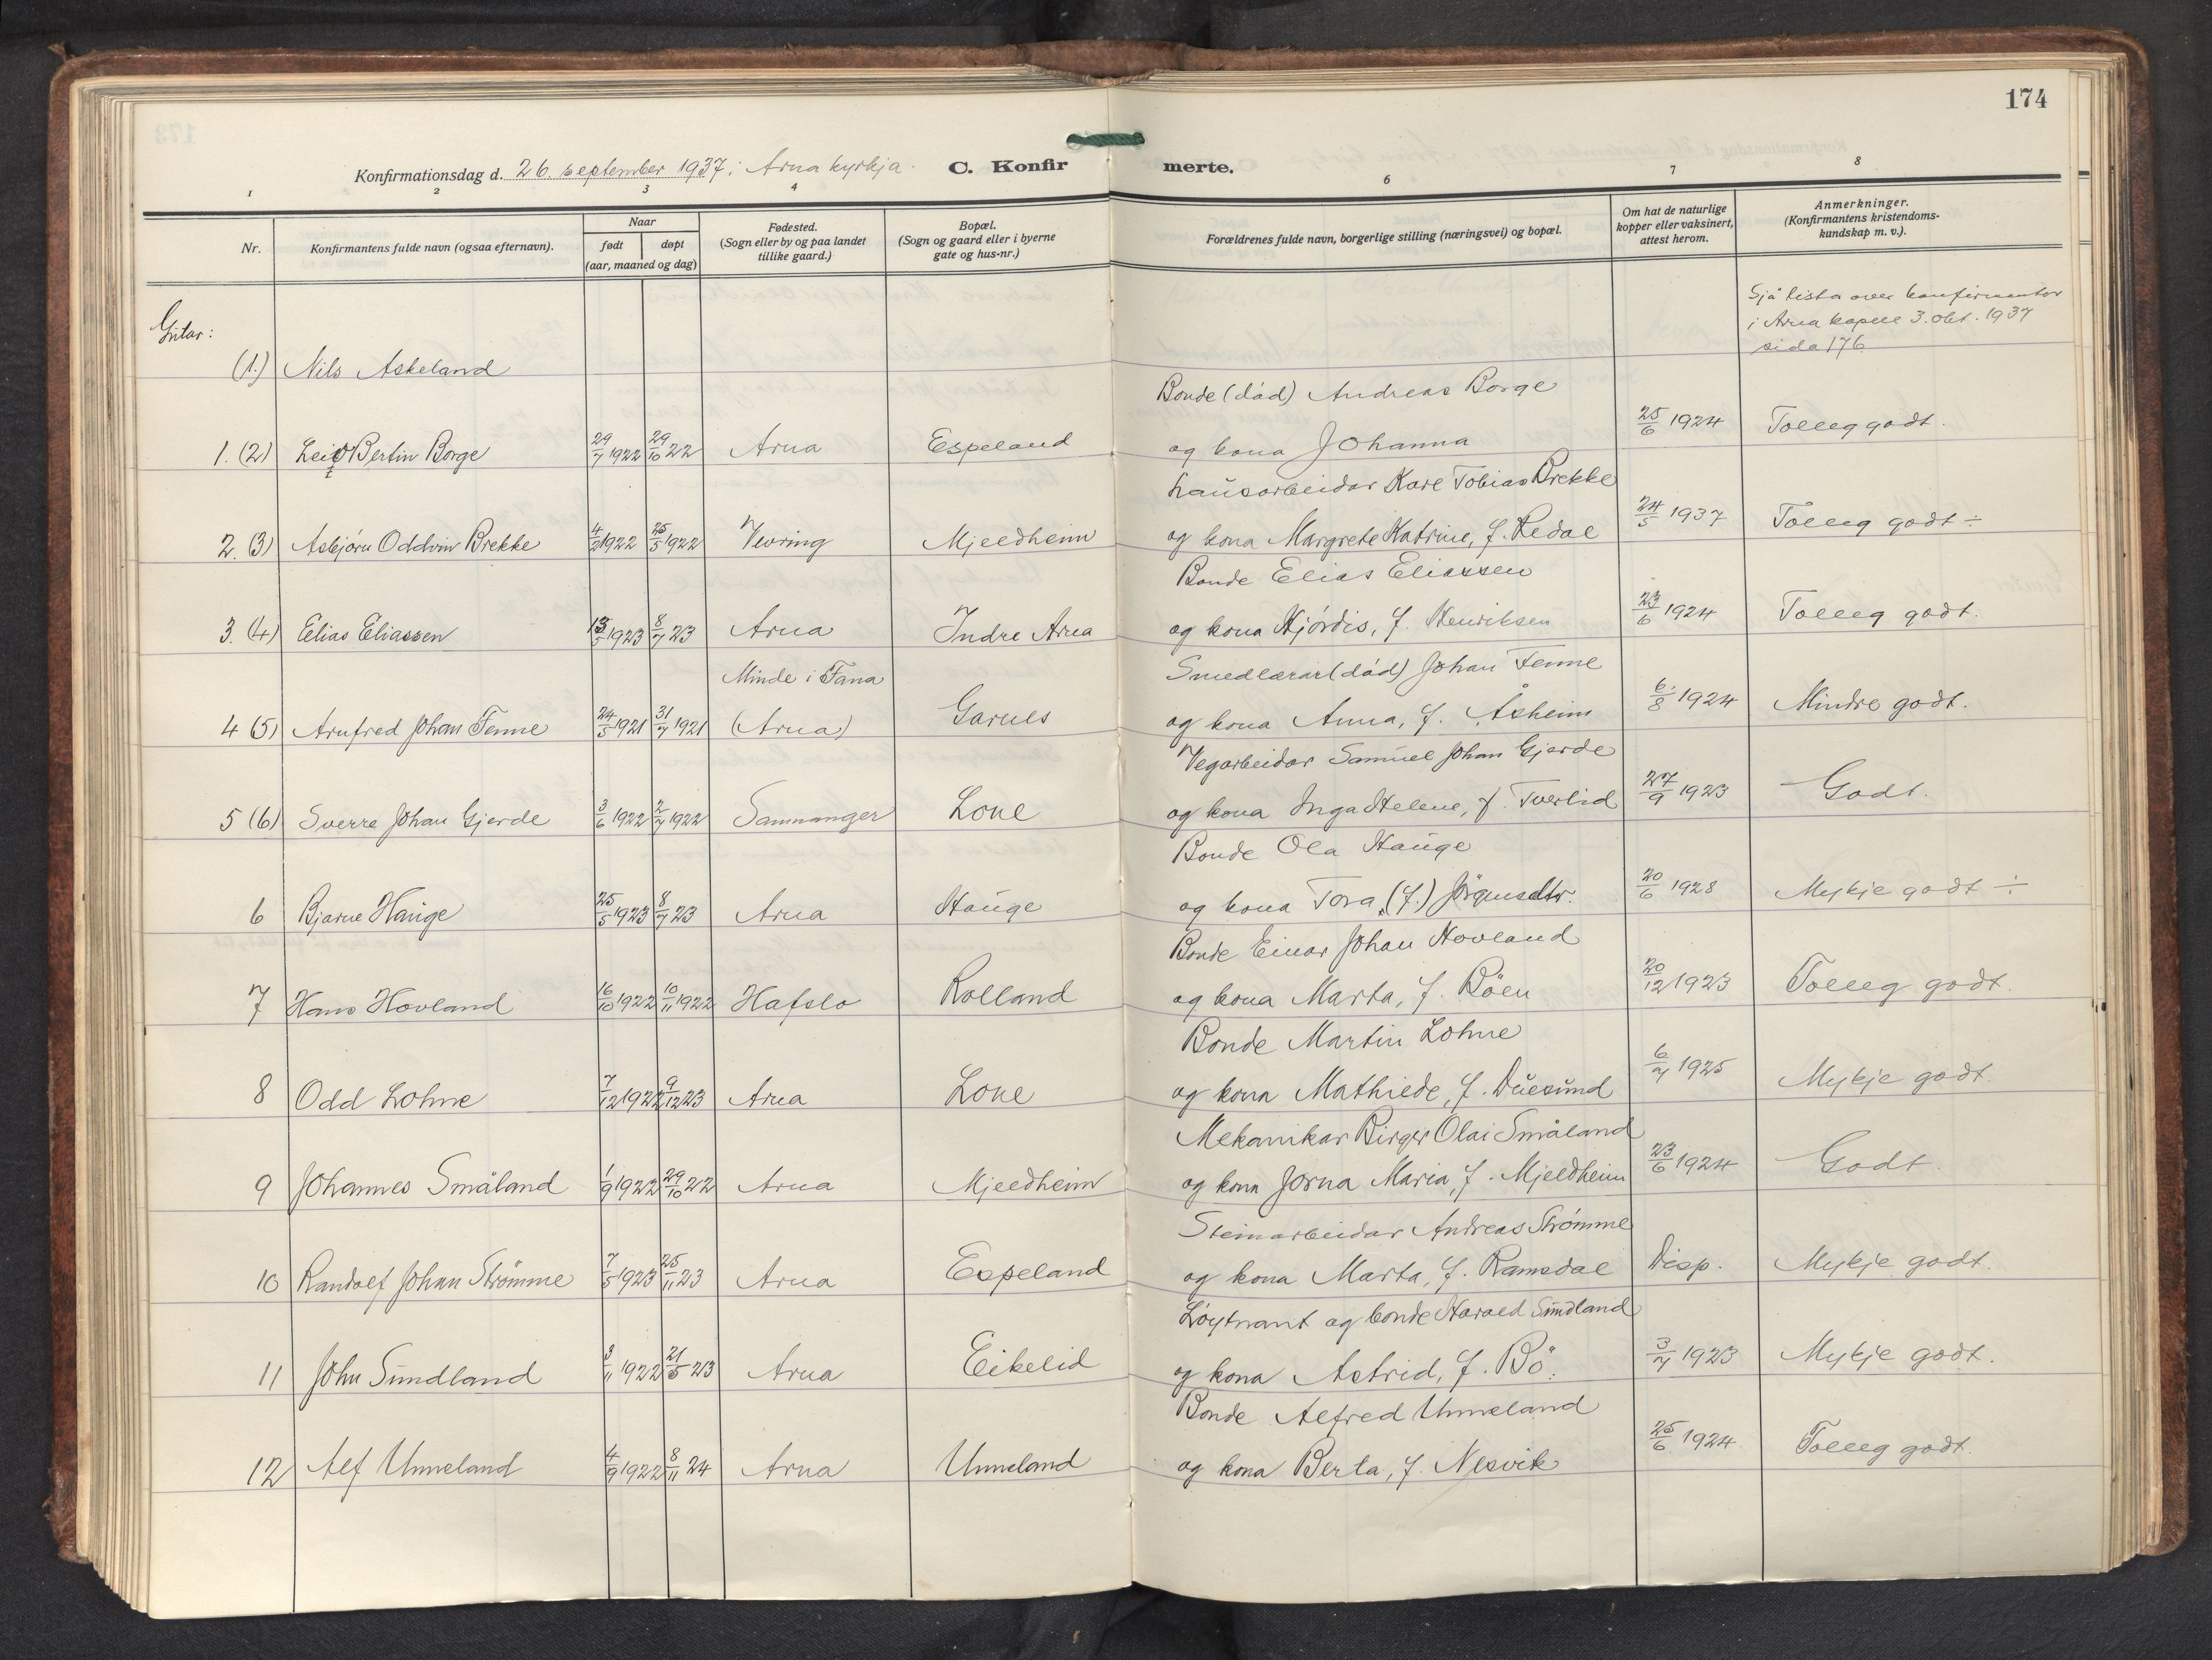 174
Konfirmationsdag d. 26. september 1937 i Arna kyrkja. C. Konfirmerte.
1 2 3 4 6 7 8
Nr. Konfirmantens fulde navn (ogsaa efternavn). Naar født døpt (aar, maaned og dag) Fødested. (Sogn eller by og paa landet tillike gaard.) Bopæl. (Sogn og gaard eller i byerne gate og hus-nr.) Forældrenes fulde navn, borgerlige stilling (næringsvei) og bopæl. Om hat de naturlige kopper eller vaksinert, attest herom. Anmerkninger. (Konfirmantens kristendoms-kundskap m. v.).
Gutar:
Sjå lista over konfirmantar
i Arna kapell 3. okt. 1937
sida 176
(1.) Nils Askeland
Bonde (död) Andreas Borge
1. (2) Leif Bertin Borge 29/7 1922 29/10 22 Arna Espeland og kona Johanna 25/6 1924 Tolleg godt.
Lausarbeidar Karl Tobias Brekke
2. (3) Asbjörn Oddvin Brekke 4/2 1922 25/5 1922 Vevring Mjeldheim og kona Margrete Katrine, f. Redal 24/5 1937 Tolleg godt ÷
Bonde Elias Eliassen
3. (4) Elias Eliassen 13/5 1923 8/7 23 Arna Indre Arna og kona Hjördis, f. Henriksen 23/6 1924 Tolleg godt.
Minde i Fana Smedlærar (död) Johan Tenne
4 (5) Arnfred Johan Tenne 24/5 1921 31/7 1921 (Arna) Garnes og kona Anna, f. Åsheim 6/8 1924 Mindre godt.
Vegarbeidar Samuel Johan Gjerde
5 (6) Sverre Johan Gjerde 3/6 1922 2/7 1922 Samnanger Lone og kona Inga Helene, f. Tverlid 27/9 1923 Godt.
Bonde Ola Hauge
6 Bjarne Hauge 25/5 1923 8/7 23 Arna Hauge og kona Tora, (f.) Jörgensdtr. 20/6 1928 Mykje godt ÷
Bonde Einar Johan Hovland
7 Hans Hovland 16/10 1922 10/11 1922 Hafslo Rolland og kona Marta, f. Böen 20/12 1923 Tolleg godt.
Bonde Martin Lohne
8 Odd Lohne 7/12 1922 9/12 23 Arna Lone og kona Mathilde, f. Duesund 6/7 1925 Mykje godt.
Mekanikar Birger Olai Småland
9 Johannes Småland 1/9 1922 29/10 22 Arna Mjeldheim og kona Jorna Maria, f. Mjeldheim 23/6 1924 Godt.
Steinarbeidar Andreas Strömme
10 Randolf Johan Strömme 7/5 1923 25/11 23 Arna Espeland og kona Marta, f. Ramsdal Disp. Mykje godt.
Löytnant og bonde Harald Sundland
11 John Sundland 3/11 1922 21/5 23 Arna Eikelid og kona Astrid, f. Bö. 3/7 1923 Mykje godt.
Bonde Alfred Unneland
12 Alf Unneland 4/9 1922 8/11 24 Arna Unneland og kona Berta, f. Nesvik 25/6 1924 Tolleg godt.